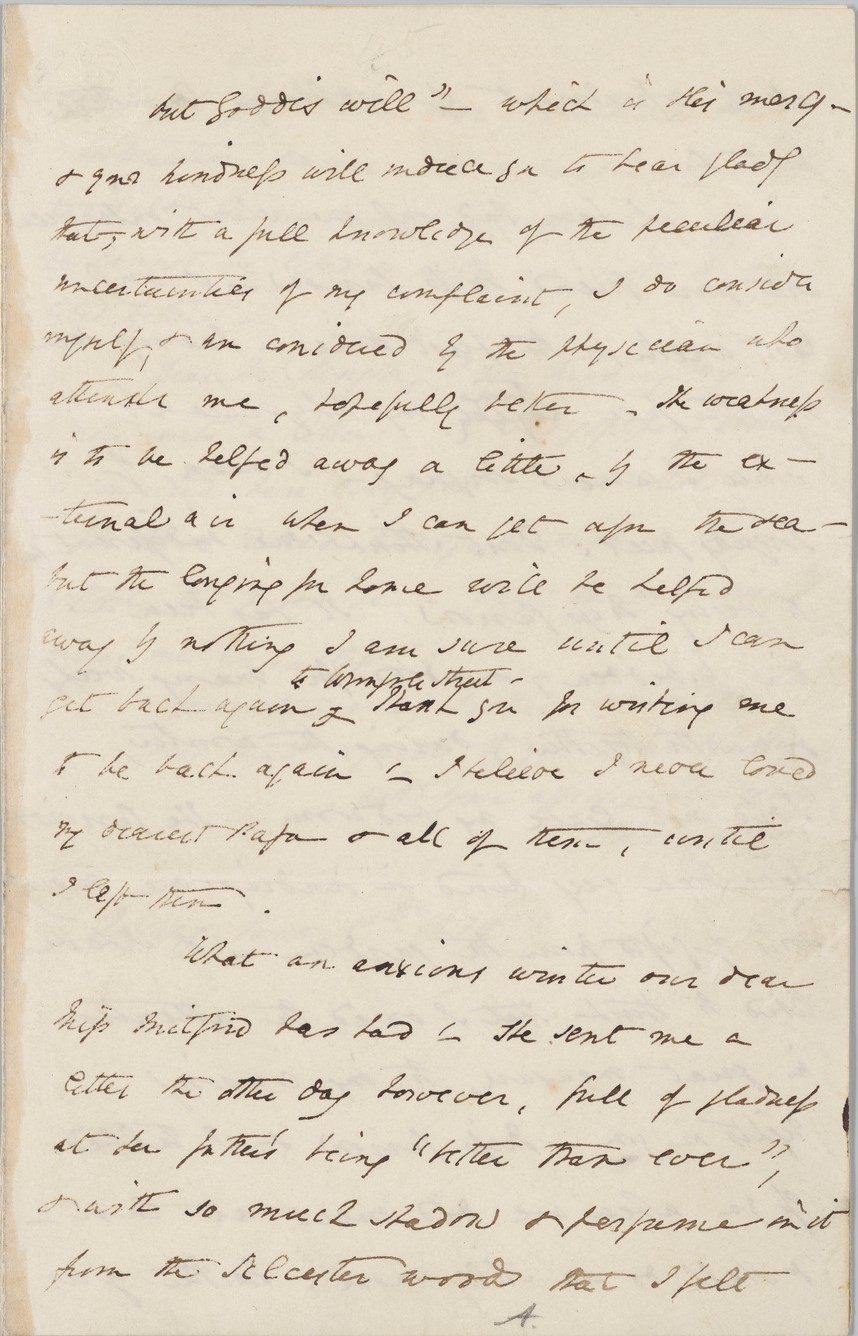 but Goddis will" – which is His mercy –
& your kindness will induce you to hear gladly
that, with a full knowledge of the peculiar
uncertainties of my complaint, I do consider
myself, & am considered by the physician who
attends me, hopefully better – The weakness
is to be helped away a little, by the ex–
–ternal air when I can get upon the sea –
but the longing for home will be helped
away by nothing I am sure until I can
to Wimpole Street –
get back again & thank you for wishing me
to be back again – I believe I never loved
my dearest Papa & all of them, until
I left them.
What an anxious winter our dear
Miss Mitford has had – She sent me a
letter the other day however, full of gladness
at her father's being "better than ever",
& with so much shadow & perfume in it
from the Silcester woods that I felt
A.